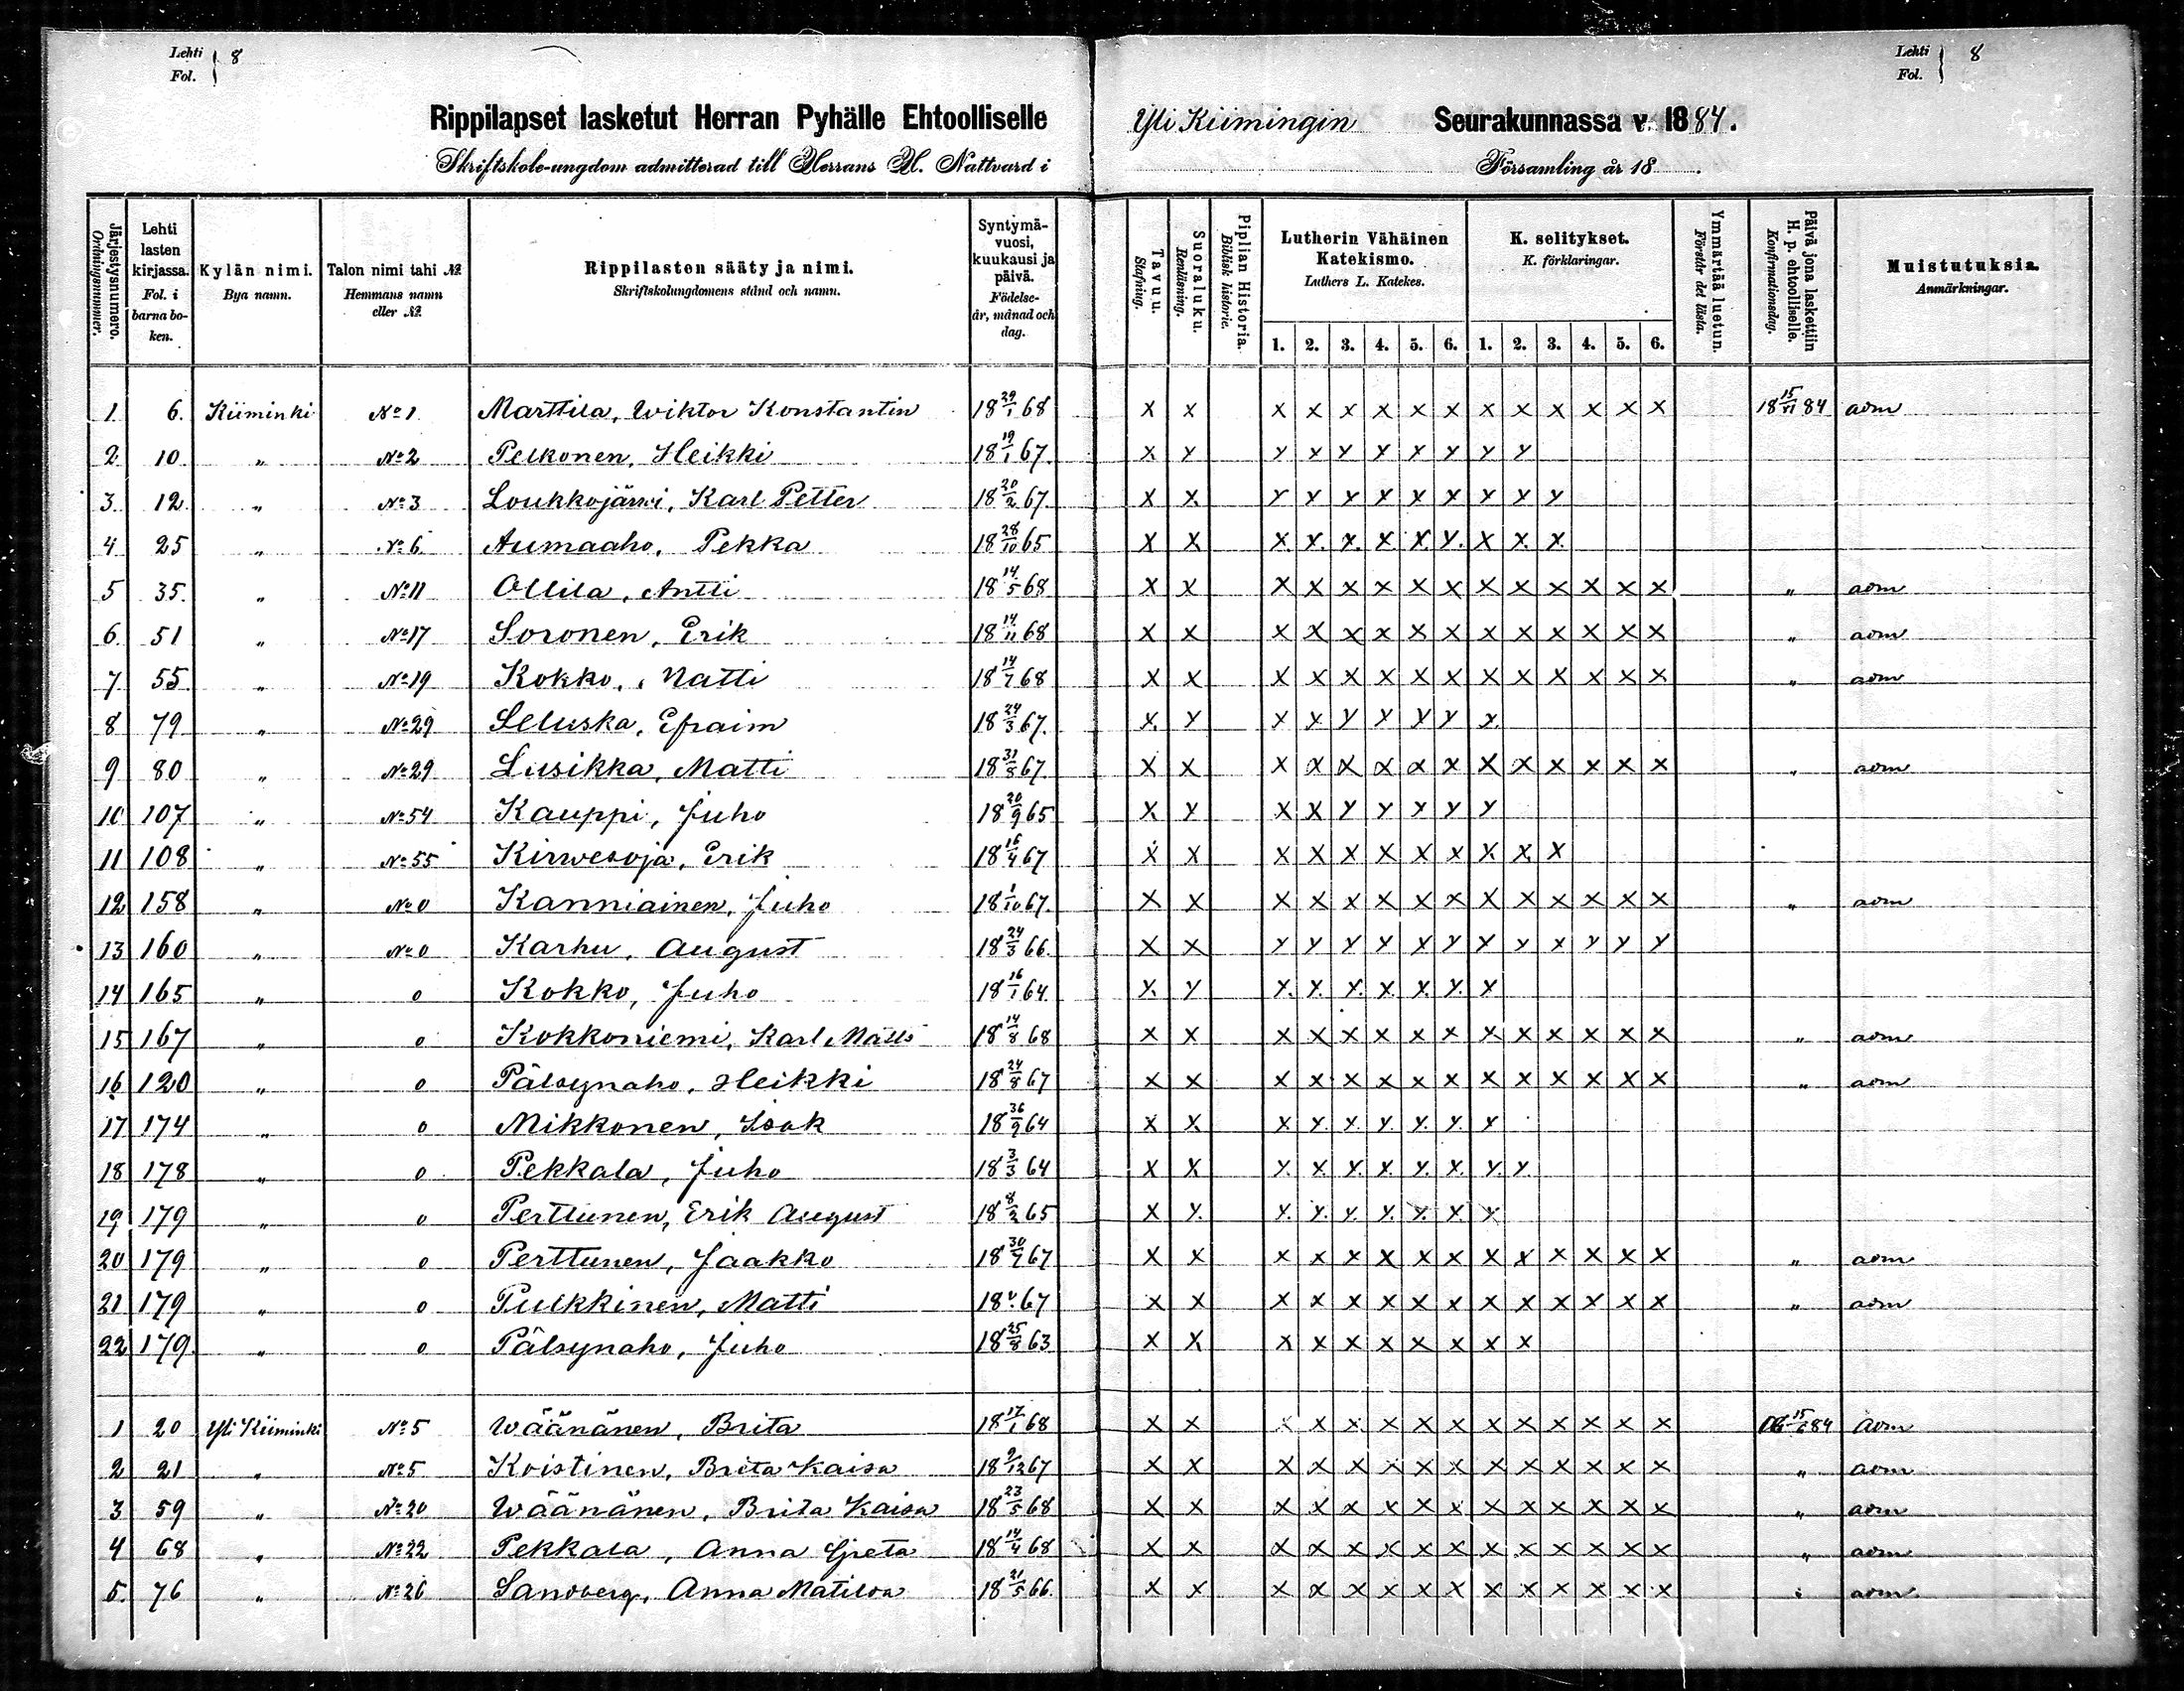 Lehti Fol. 8
Lehti Fol. 8
Rippilapset lasketut Herran Pyhälle Ehtoolliselle Yli Kiimingin Seurakunnassa v. 1884.
Skriftskole-ungdom admitterad till Herrans H. Nattvard i Församling år 18
Järjestysnumero. Ordningsnummer.
Lehti lasten kirjassa. Fol. i barna boken.
Kylän nimi. Bya namn.
Talon nimi tahi № Hemmans namn eller №
Rippilasten sääty ja nimi. Skriftskolungdomens stånd och namn.
Syntymävuosi, kuukausi ja päivä. Födelseår, månad och dag.
Tavuu. Stafning.
Suoraluku. Renläsning.
Piplian Historia. Biblisk historie.
Lutherin Vähäinen Katekismo. Luthers L. Katekes.
K. selitykset. K. förklaringar.
Ymmärtää luetun. Förstår det lästa.
Päivä jona laskettiin H. p. ehtoolliselle. Konfirmationsdag.
Muistutuksia. Anmärkningar.
1. 2. 3. 4. 5. 6. 1. 2. 3. 4. 5. 6.
1. 6. Kiiminki No 1 Marttila, Wiktor Konstantin 18 29/1 68 x x x x x x x x x x x x x x 18 15/VI 84 adm
2. 10 " No 2 Pelkonen, Heikki 18 19/1 67. x x x x x x x x x x
3. 12 " No 3 Loukkojärwi, Karl Petter 18 20/2 67. x x x x x x x x x x x
4 25 " No 6 Aumaaho, Pekka 18 28/10 65 x x x x x x x x x x x
5 35. " No 11 Ollila, Antti 18 14/5 68 x x x x x x x x x x x x x x " adm
6. 51 " No 17 Soronen, Erik 18 14/11 68 x x x x x x x x x x x x x x " adm
7. 55 " No 19 Kokko, Matti 18 14/7 68 x x x x x x x x x x x x x x " adm
8 79 " No 29 Seluska, Efraim 18 24/3 67. x x x x x x x x x
9 80 " No 29 Lusikka, Matti 18 31/8 67 x x x x x x x x x x x x x x " adm
10 107 " No 54 Kauppi, Juho 18 20/9 65 x x x x x x x x x
11 108 " No 55 Kirwesoja, Erik 18 16/4 67 x x x x x x x x x x x
12 158 " No 0 Kanniainen, Juho 18 1/10 67. x x x x x x x x x x x x x x " adm
13 160 " No 0 Karhu, August 18 24/3 66 x x x x x x x x x x x x x x
14 165 " 0 Kokko, Juho 18 16/1 64 x x x x x x x x x
15 167 " 0 Kokkoniemi, Karl Matts 18 14/8 68 x x x x x x x x x x x x x x " adm
16 120 " 0 Pälsynaho, Heikki 18 24/8 67 x x x x x x x x x x x x x x " adm
17 174 " 0 Mikkonen, Isak 18 /9 64 x x x x x x x x x
18 178 " 0 Pekkala, Juho 18 3/3 64 x x x x x x x x x x
19 179 " 0 Perttunen, Erik August 18 8/2 65 x x x x x x x x x
20 179 " 0 Perttunen, Jaakko 18 30/7 67 x x x x x x x x x x x x x x " adm
21 179 " 0 Pulkkinen, Matti 18 67 x x x x x x x x x x x x x x " adm
22 179. " 0 Pälsynaho, Juho 18 25/8 63 x x x x x x x x x x
1 20 Yli Kiiminki No 5 Wäänänen, Brita 18 17/1 68 x x x x x x x x x x x x x x 15/6 84 adm
2 21 " No 5 Koistinen, Brita Kaisa 18 9/12 67 x x x x x x x x x x x x x x " adm
3 59 " No 20 Wäänänen, Brita Kaisa 18 23/5 68 x x x x x x x x x x x x x x " adm
4 68 " No 22 Pekkala, Anna Greta 18 14/4 68 x x x x x x x x x x x x x x " adm
5. 76 " No 26 Sandberg, Anna Matilda 18 21/5 66. x x x x x x x x x x x x x x " adm